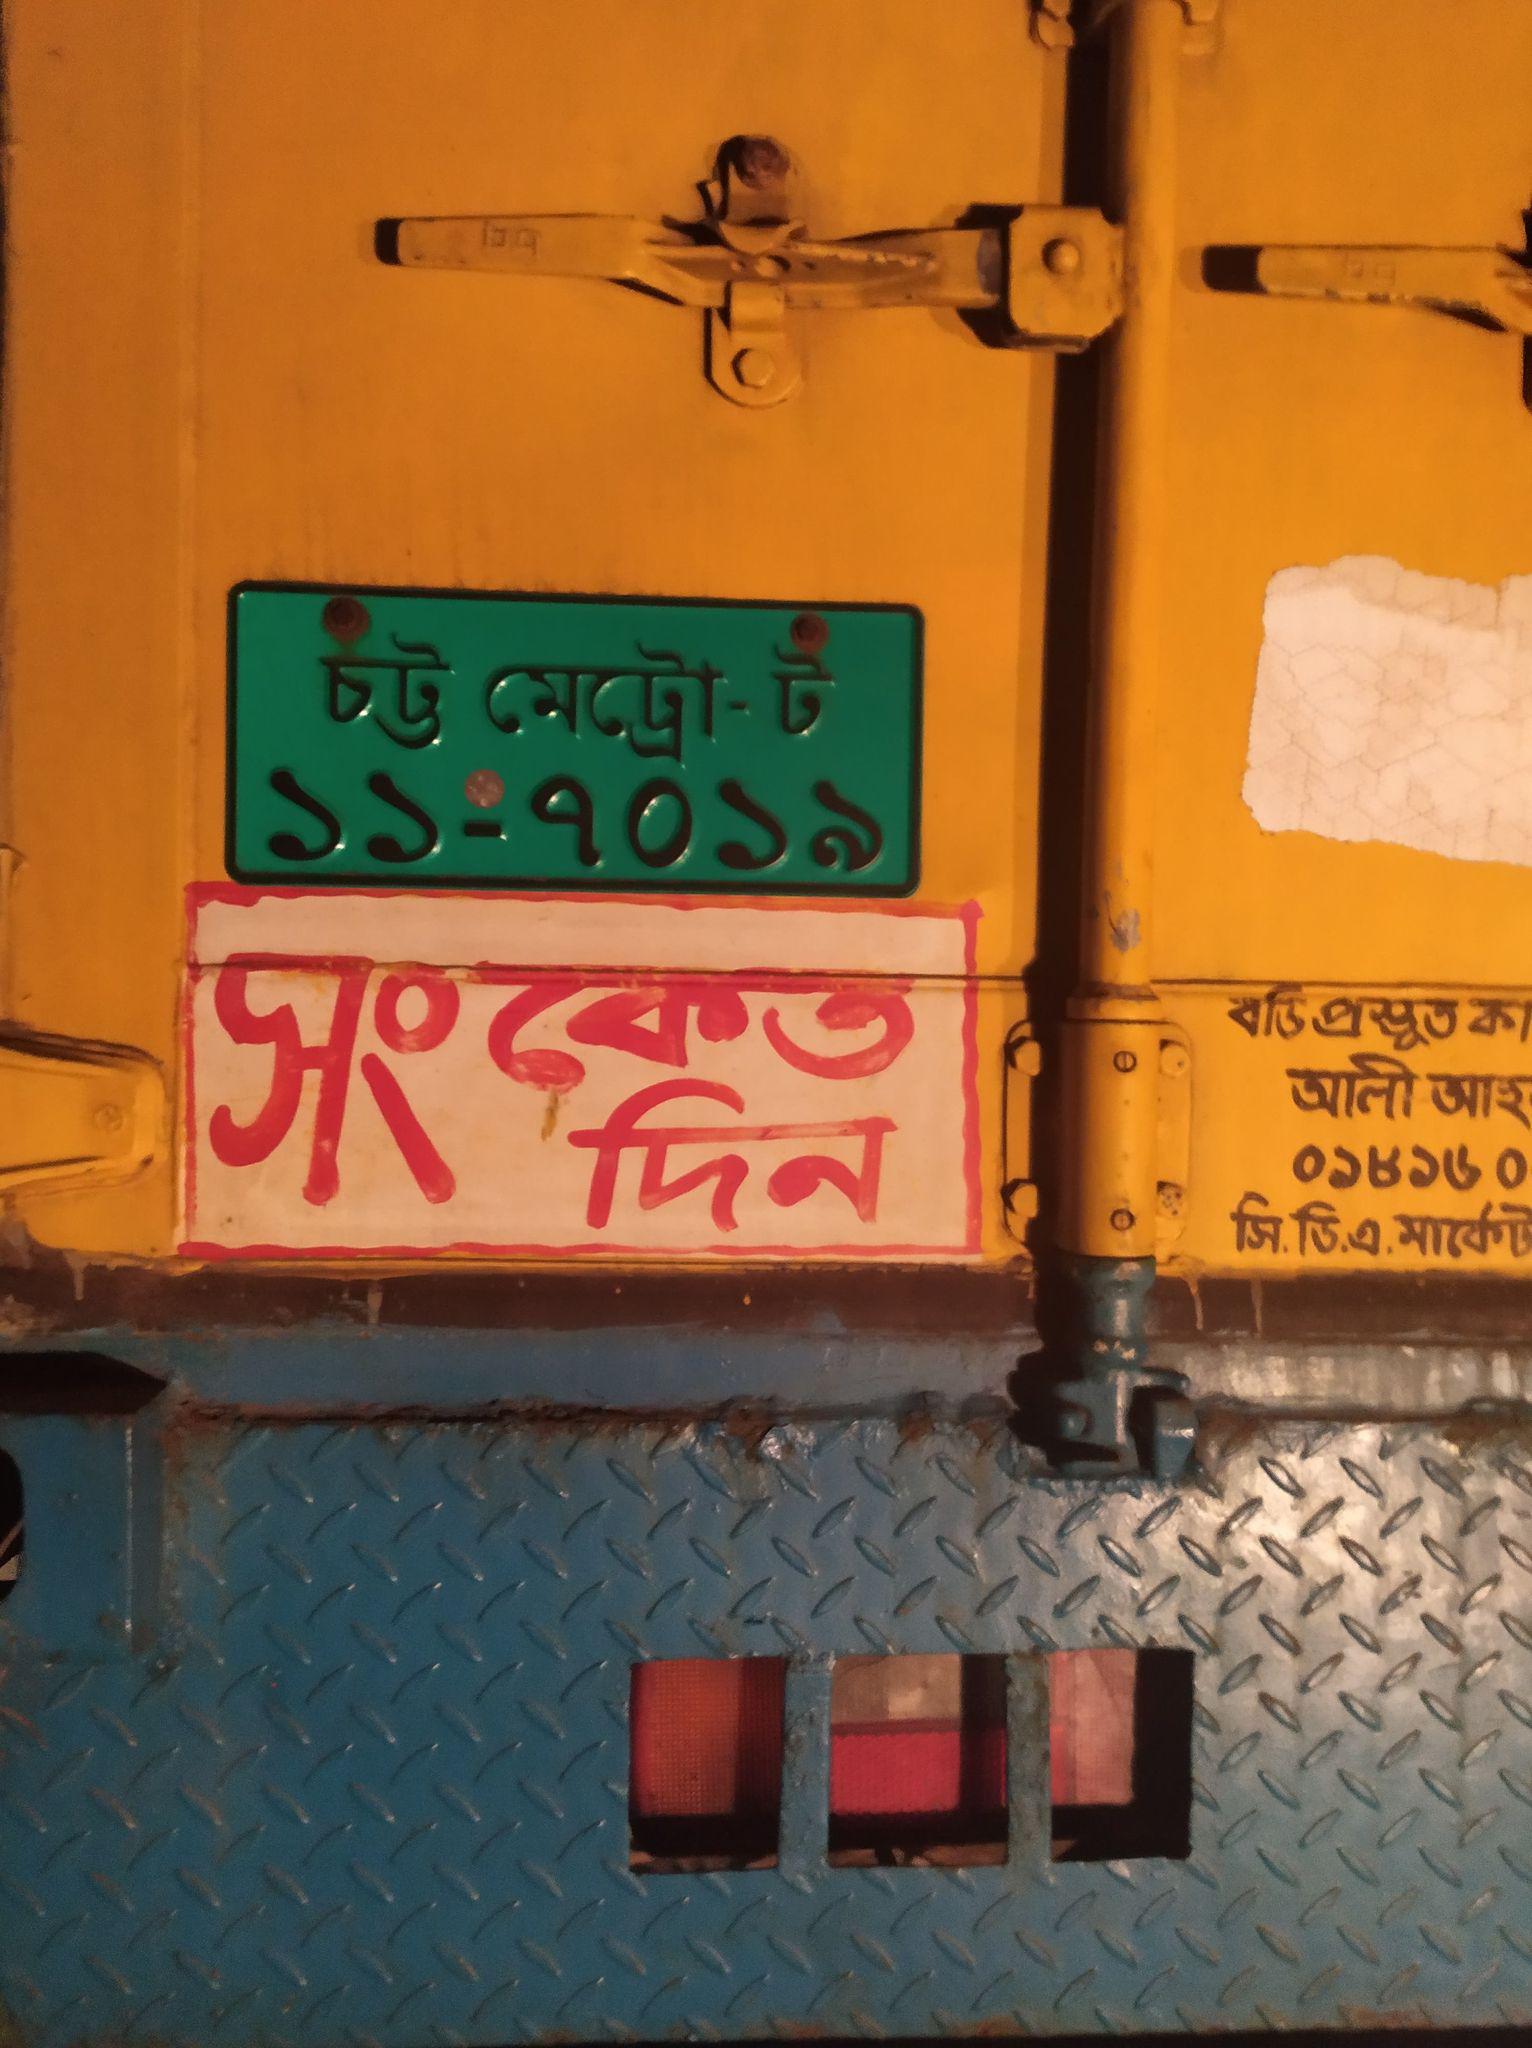 চট্ট মেট্রো-ট
১১-৭০১৯
সংকেত
দিন
বডি প্রস্তুত কা
আলী আহ
০১৮১৬ ০
সি.ডি.এ.মার্কেট